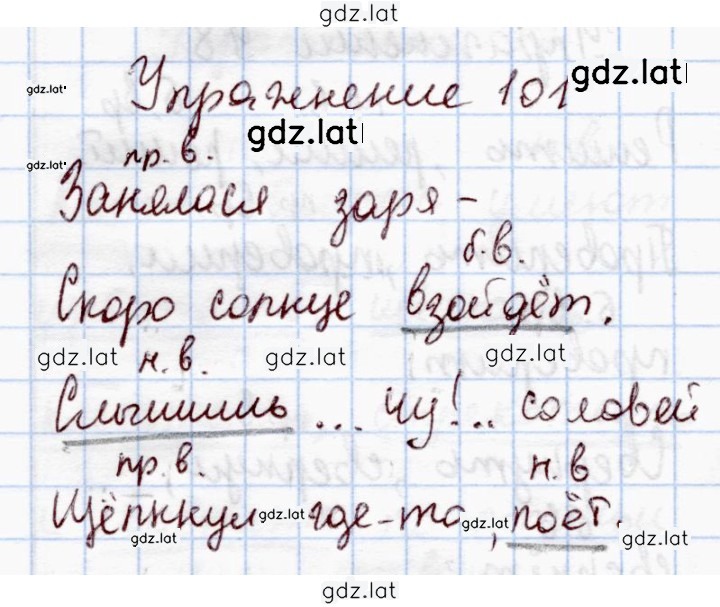 gdz.lat
Упражнение 101 gdz.lat
gdz.lat
пр. в. gdz.lat
gdz.lat
Занялася заря –
б.в.
Скоро солнце взойдёт.
gdz.lat н. в. gdz.lat gdz.lat
Слышишь ... чу!.. соловей
пр. в. н. в
Щёлкнул gdz.lat где-то gdz.lat, поёт.
gdz.lat gdz.lat
gdz.lat